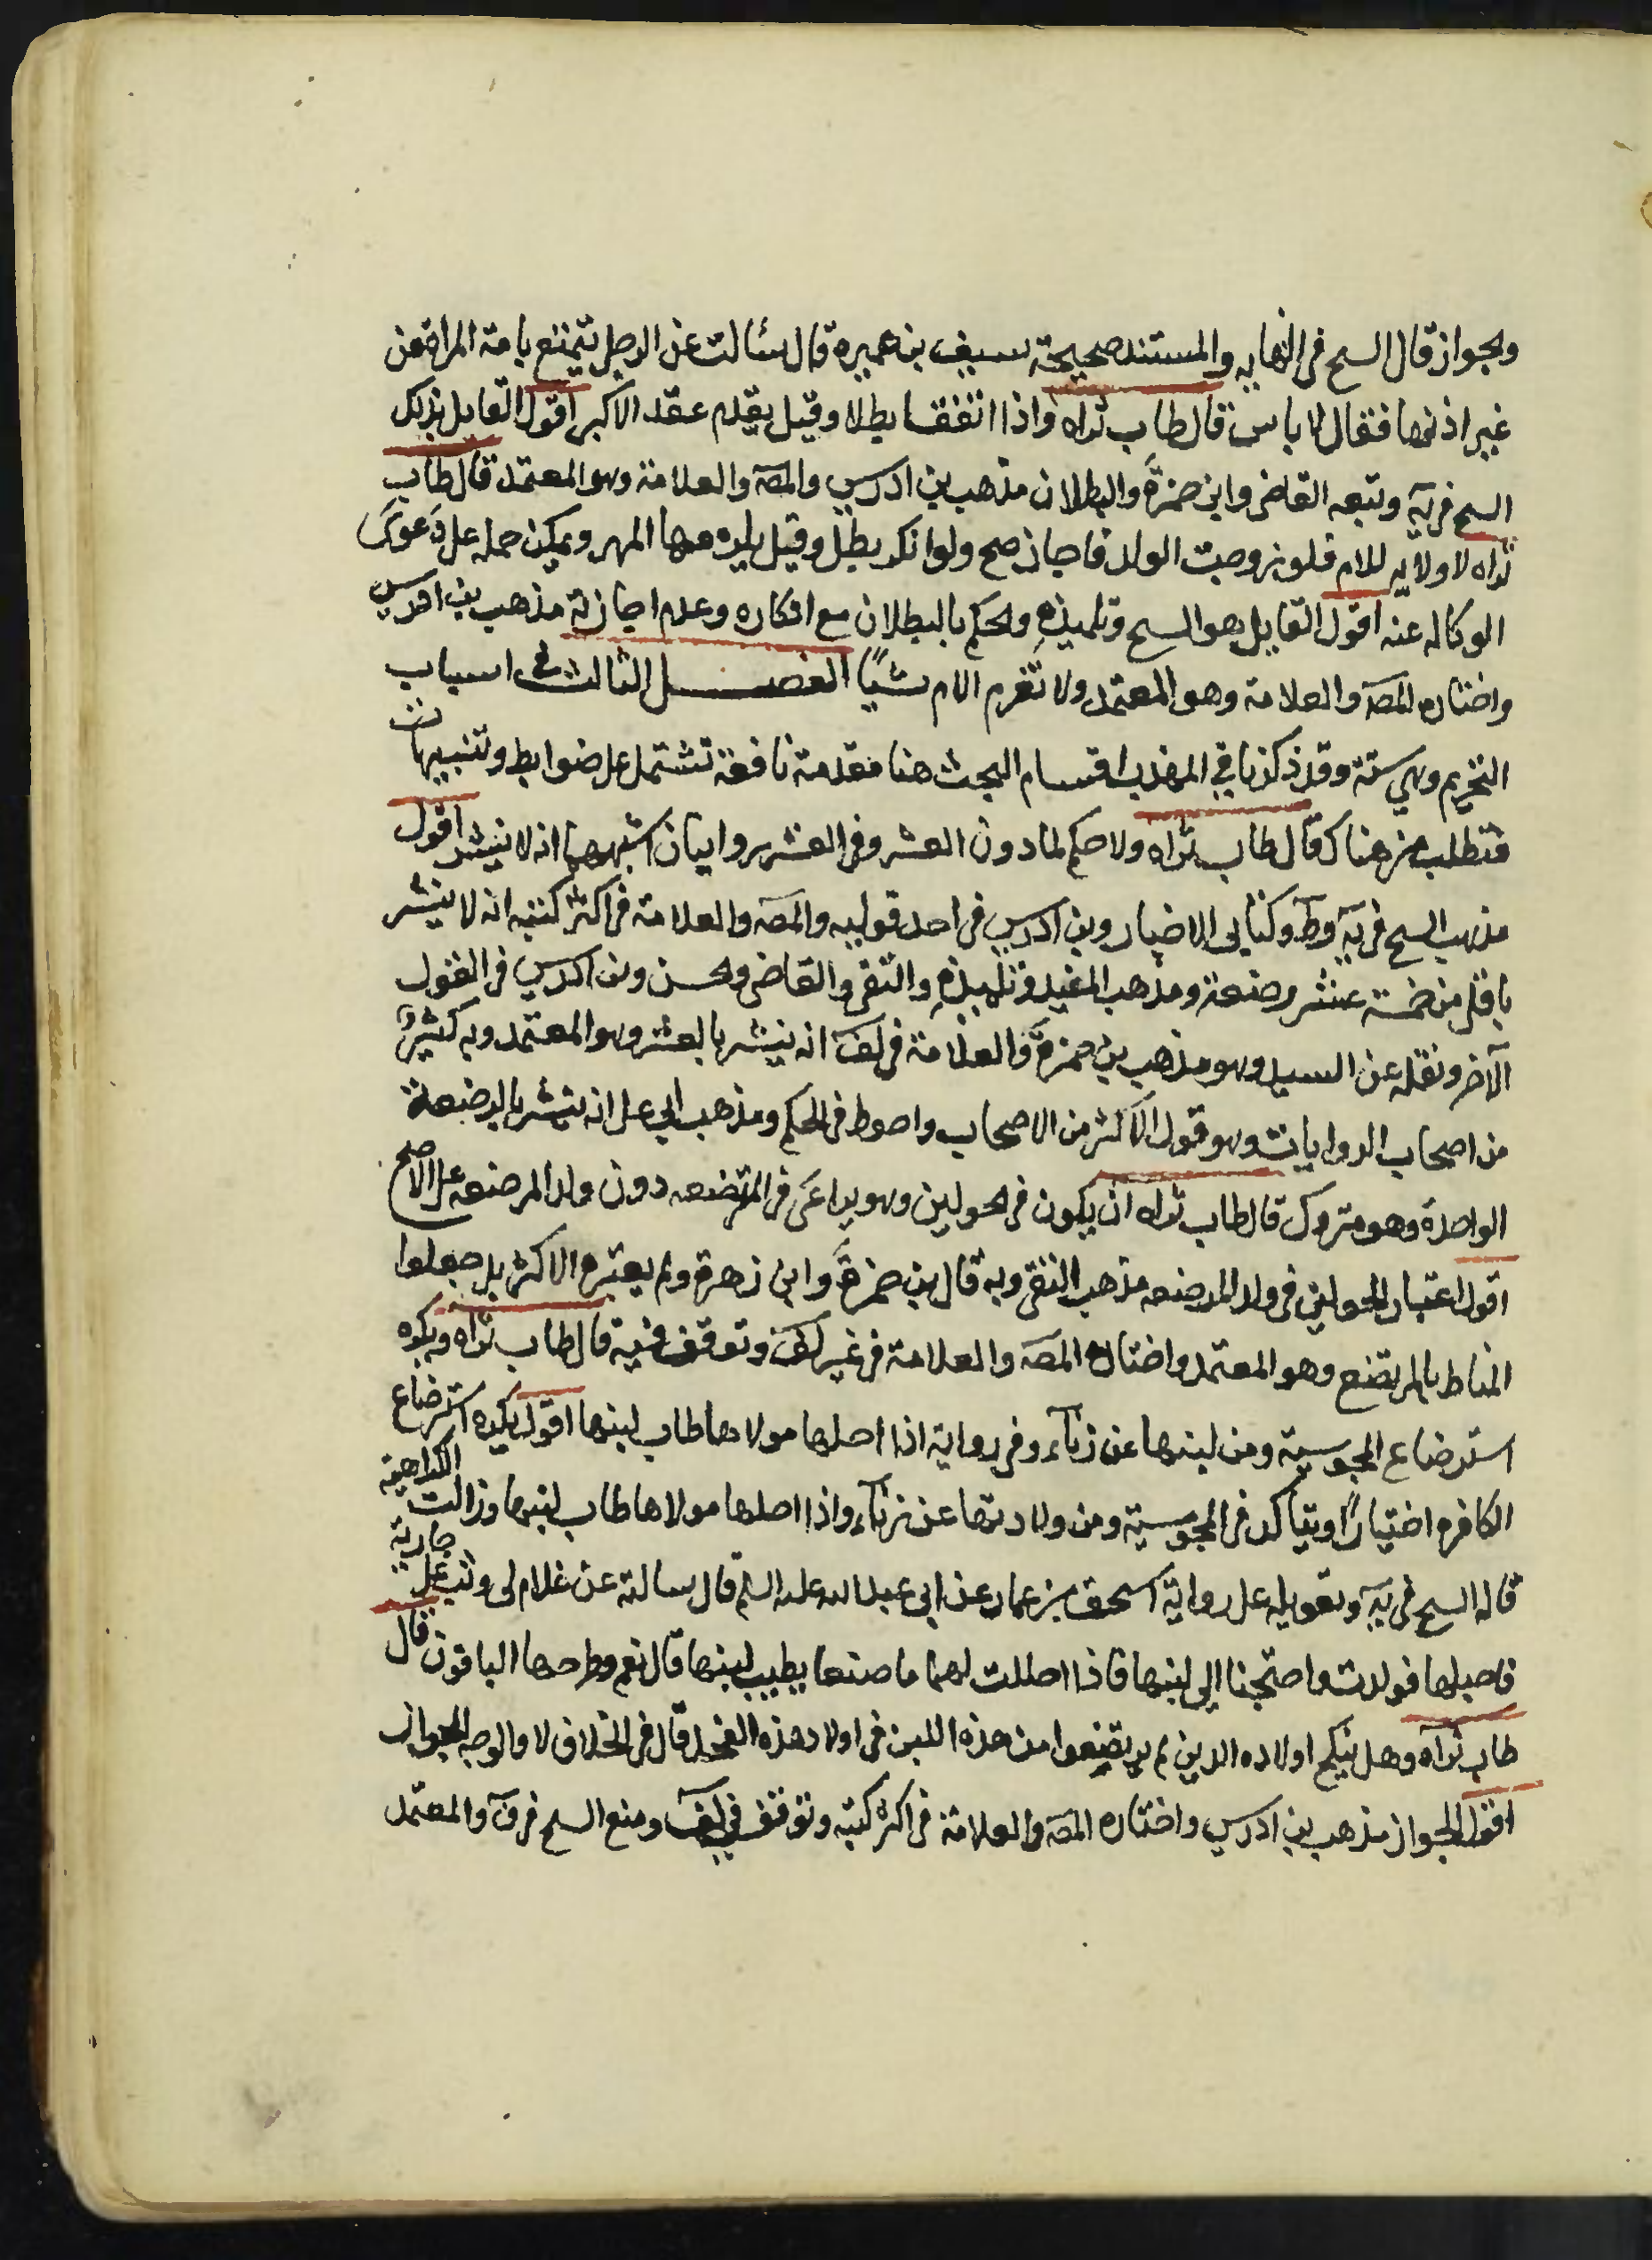 والجواز قال الشيخ فى النهايه والمستند صحيحة سيف بن عميرة قال سئالت عن الرجل يتمتع بامة المراة من
غير اذنها فقال لا باس قال طاب ثراه واذا اتفقا بطلا وقيل يقدم عقد الاكبر اقول القايل بذلك
الشيخ فى يه وتبعه القاضى وابن حمزة والبطلان مذهب بن ادريس والمصه والعلامة وهو المعتمد قال طاب
ثراه لا ولايه للام فلو زوجت الولد فاجاز صح ولو انكر بطل وقيل يلزمها المهر ويمكن حمله على دعوى
الوكاله عنه اقول القايل هو الشيخ وتلميذه والحكم بالبطلان مع انكاره وعدم اجازته مذهب بن ادريس
واختاره المصه والعلامة وهو المعتمد ولا تغرم الام شيًا الفصل الثالث فى اسباب
التحريم وهي ستة وقد ذكرنا في المهذب اقسام البحث هنا مقدمة نافعة تشتمل على ضوابط وتنبيهات
فتطلب من هناك قال طاب ثراه ولا حكم لما دون العشر وفى العشر روايتان اشبههما انه لا ينشر اقول
مذهب الشيخ فى يه وط وكتابى الاخبار وبن ادريس فى احد قوليه والمصه والعلامة فى اكثر كتبه انه لا ينشر
باقل من خمسة عشر رضعة ومذهب المفيد وتلميذه والتقى والقاضى والحسن وبن ادريس فى القول
الآخر ونقله عن السيد وهو مذهب بن حمزة والعلامة فى لف انه ينشر بالعشر وهو المعتمد وبه كثير
من اصحاب الروايات وهو قول الاكثر من الاصحاب واحوط فى الحكم ومذهب ابي على انه ينشر بالرضعة
الواحدة وهو متروك قال طاب ثراه ان يكون فى الحولين وهو يراعى فى المرتضعه دون ولد المرضعه على الاصح
اقول اعتبار الحولين فى ولد المرضعه مذهب التقى وبه قال بن حمزة وابن زهرة ولم يعتبره الاكثر بل جعلوا
المناط بالمرتضع وهو المعتمد واختاره المصه والعلامة فى غير لف وتوقف فيه قال طاب ثراه ويكره
استرضاع المجوسية ومن لبنها عن زناء وفى رواية اذا احلها مولاها طاب لبنها اقول يكره استرضاع
الكافره اختيارًا ويتاكد فى المجوسية ومن ولادتها عن زناء واذا احلها مولاها طاب لبنها وزالت الكراهية
قاله الشيخ فى يه وتعويله على رواية اسحق بن عمار عن ابى عبد الله عليه السلم قال سالته عن غلام لى وثب على جارية
فاحبلها فولدت واحتجنا الى لبنها فاذا احللت لهما ما صنعا يطيب لبنها قال نعم وطرحها الباقون قال
طاب ثراه وهل ينكح اولاده الذين لم يرتضعوا من هذه اللبن فى اولاد هذه الفحل قال فى الخلاف لا والوجه الجواز
اقول الجواز مذهب بن ادريس واختاره المصه والعلامة فى اكثر كتبه وتوقف في لف ومنع الشيخ فى ف والمعتمد